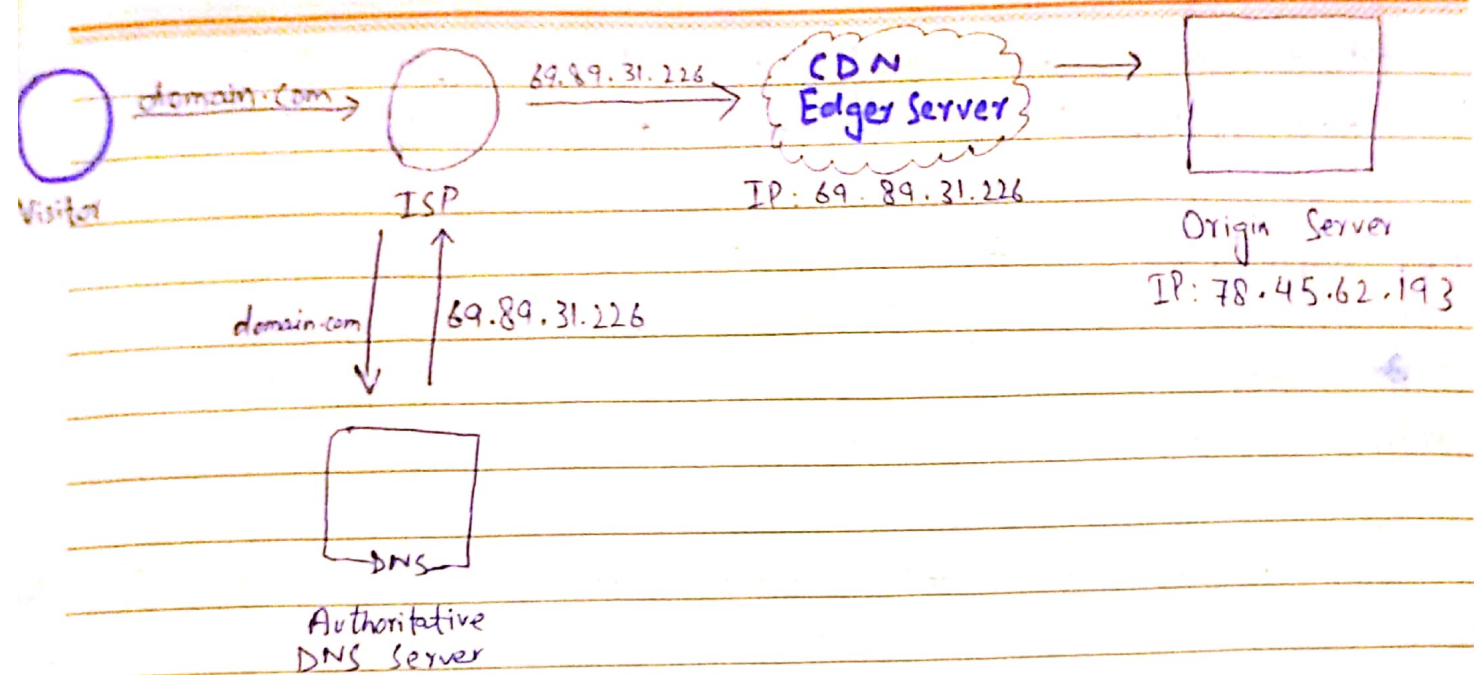 domain.com
69.89.31.226
CDN
Edger Server
Visitor
ISP
IP: 69.89.31.226
Origin Server
IP: 78.45.62.193
domain.com
69.89.31.226
DNS
Authoritative
DNS Server